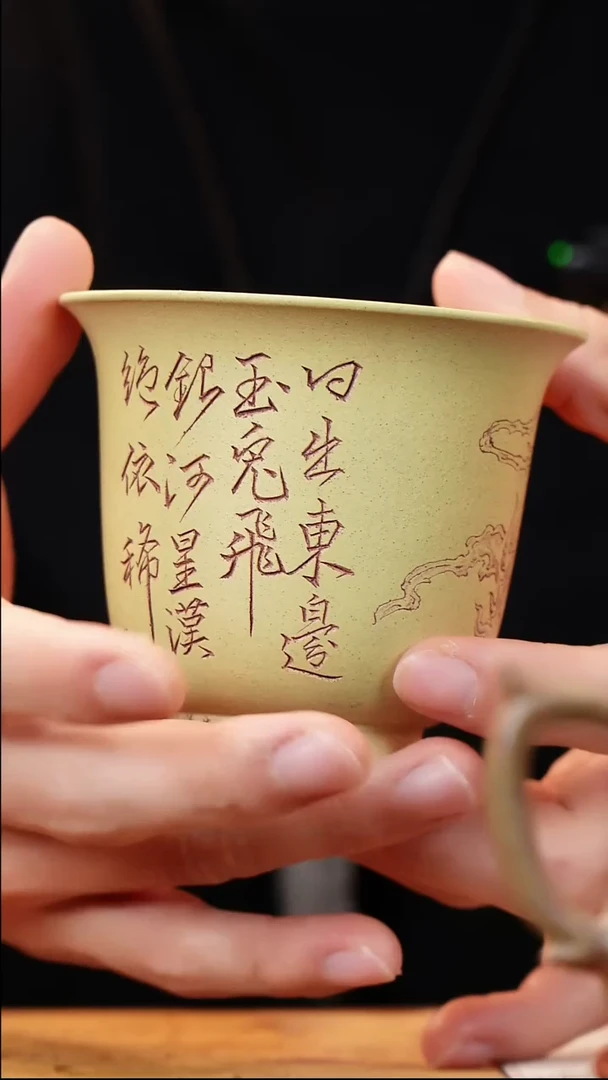 日生東邊
玉兔飛
銀河星漢
絶依稀